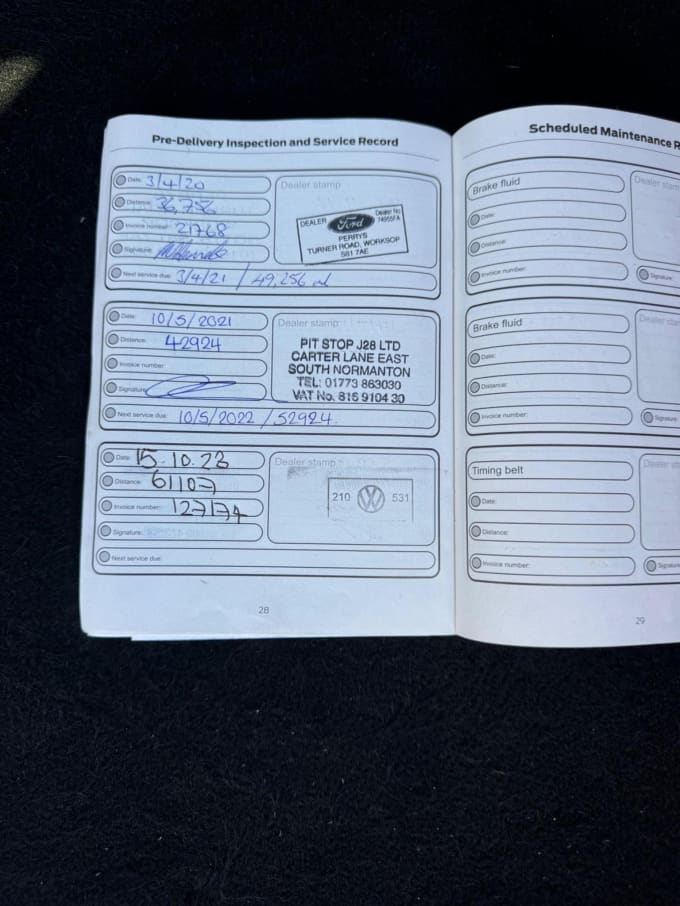 Pre-Delivery Inspection and Service Record
Date: 3/4/20
Distance: 36,756
Invoice number: 21768
Signature:
Next service due: 3/4/21 / 49,256
Dealer stamp
DEALER Ford Dealer No
PERRYS
TURNER ROAD, WORKSOP
S81 7AE
Date: 10/5/2021
Distance: 42924
Invoice number:
Signature:
Next service due: 10/5/2022 / 52924
Dealer stamp
PIT STOP J28 LTD
CARTER LANE EAST
SOUTH NORMANTON
TEL: 01773 863030
VAT No. 815 9104 30
Date: 15.10.23
Distance: 61107
Invoice number: 127174
Signature:
Next service due:
Dealer stamp
210 VW 531
28
Scheduled Maintenance R
Brake fluid
Date:
Distance:
Invoice number:
Dealer stam
Signature:
Brake fluid
Date:
Distance:
Invoice number:
Dealer star
Signature
Timing belt
Date:
Distance:
Invoice number:
Dealer st
Signature
29